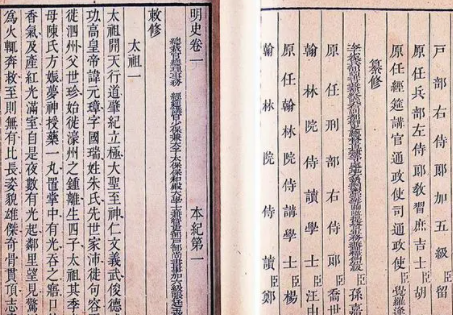 戶部右侍郎加五級臣留
原任兵部左侍郎敎習庶吉士臣胡
原任經筵講官通政使司通政使臣覺羅逢
纂修
原任刑部右侍郎臣喬世
翰林院侍讀學士臣汪由
原任翰林院侍講學士臣楊
翰林院侍讀臣鄭
明史卷一 本紀第一
敕修
太祖一
太祖開天行道肇紀立極大聖至神仁文義武俊德
功高皇帝諱元璋字國瑞姓朱氏先世家沛徙句容
徙泗州父世珍始徙濠州之鍾離生四子太祖其季
母陳氏方娠夢神授藥一丸置掌中有光吞之寤口
香氣及產紅光滿室自是夜數有光起鄰里望見驚
爲火輒奔救至則無有比長姿貌雄傑奇骨貫頂志